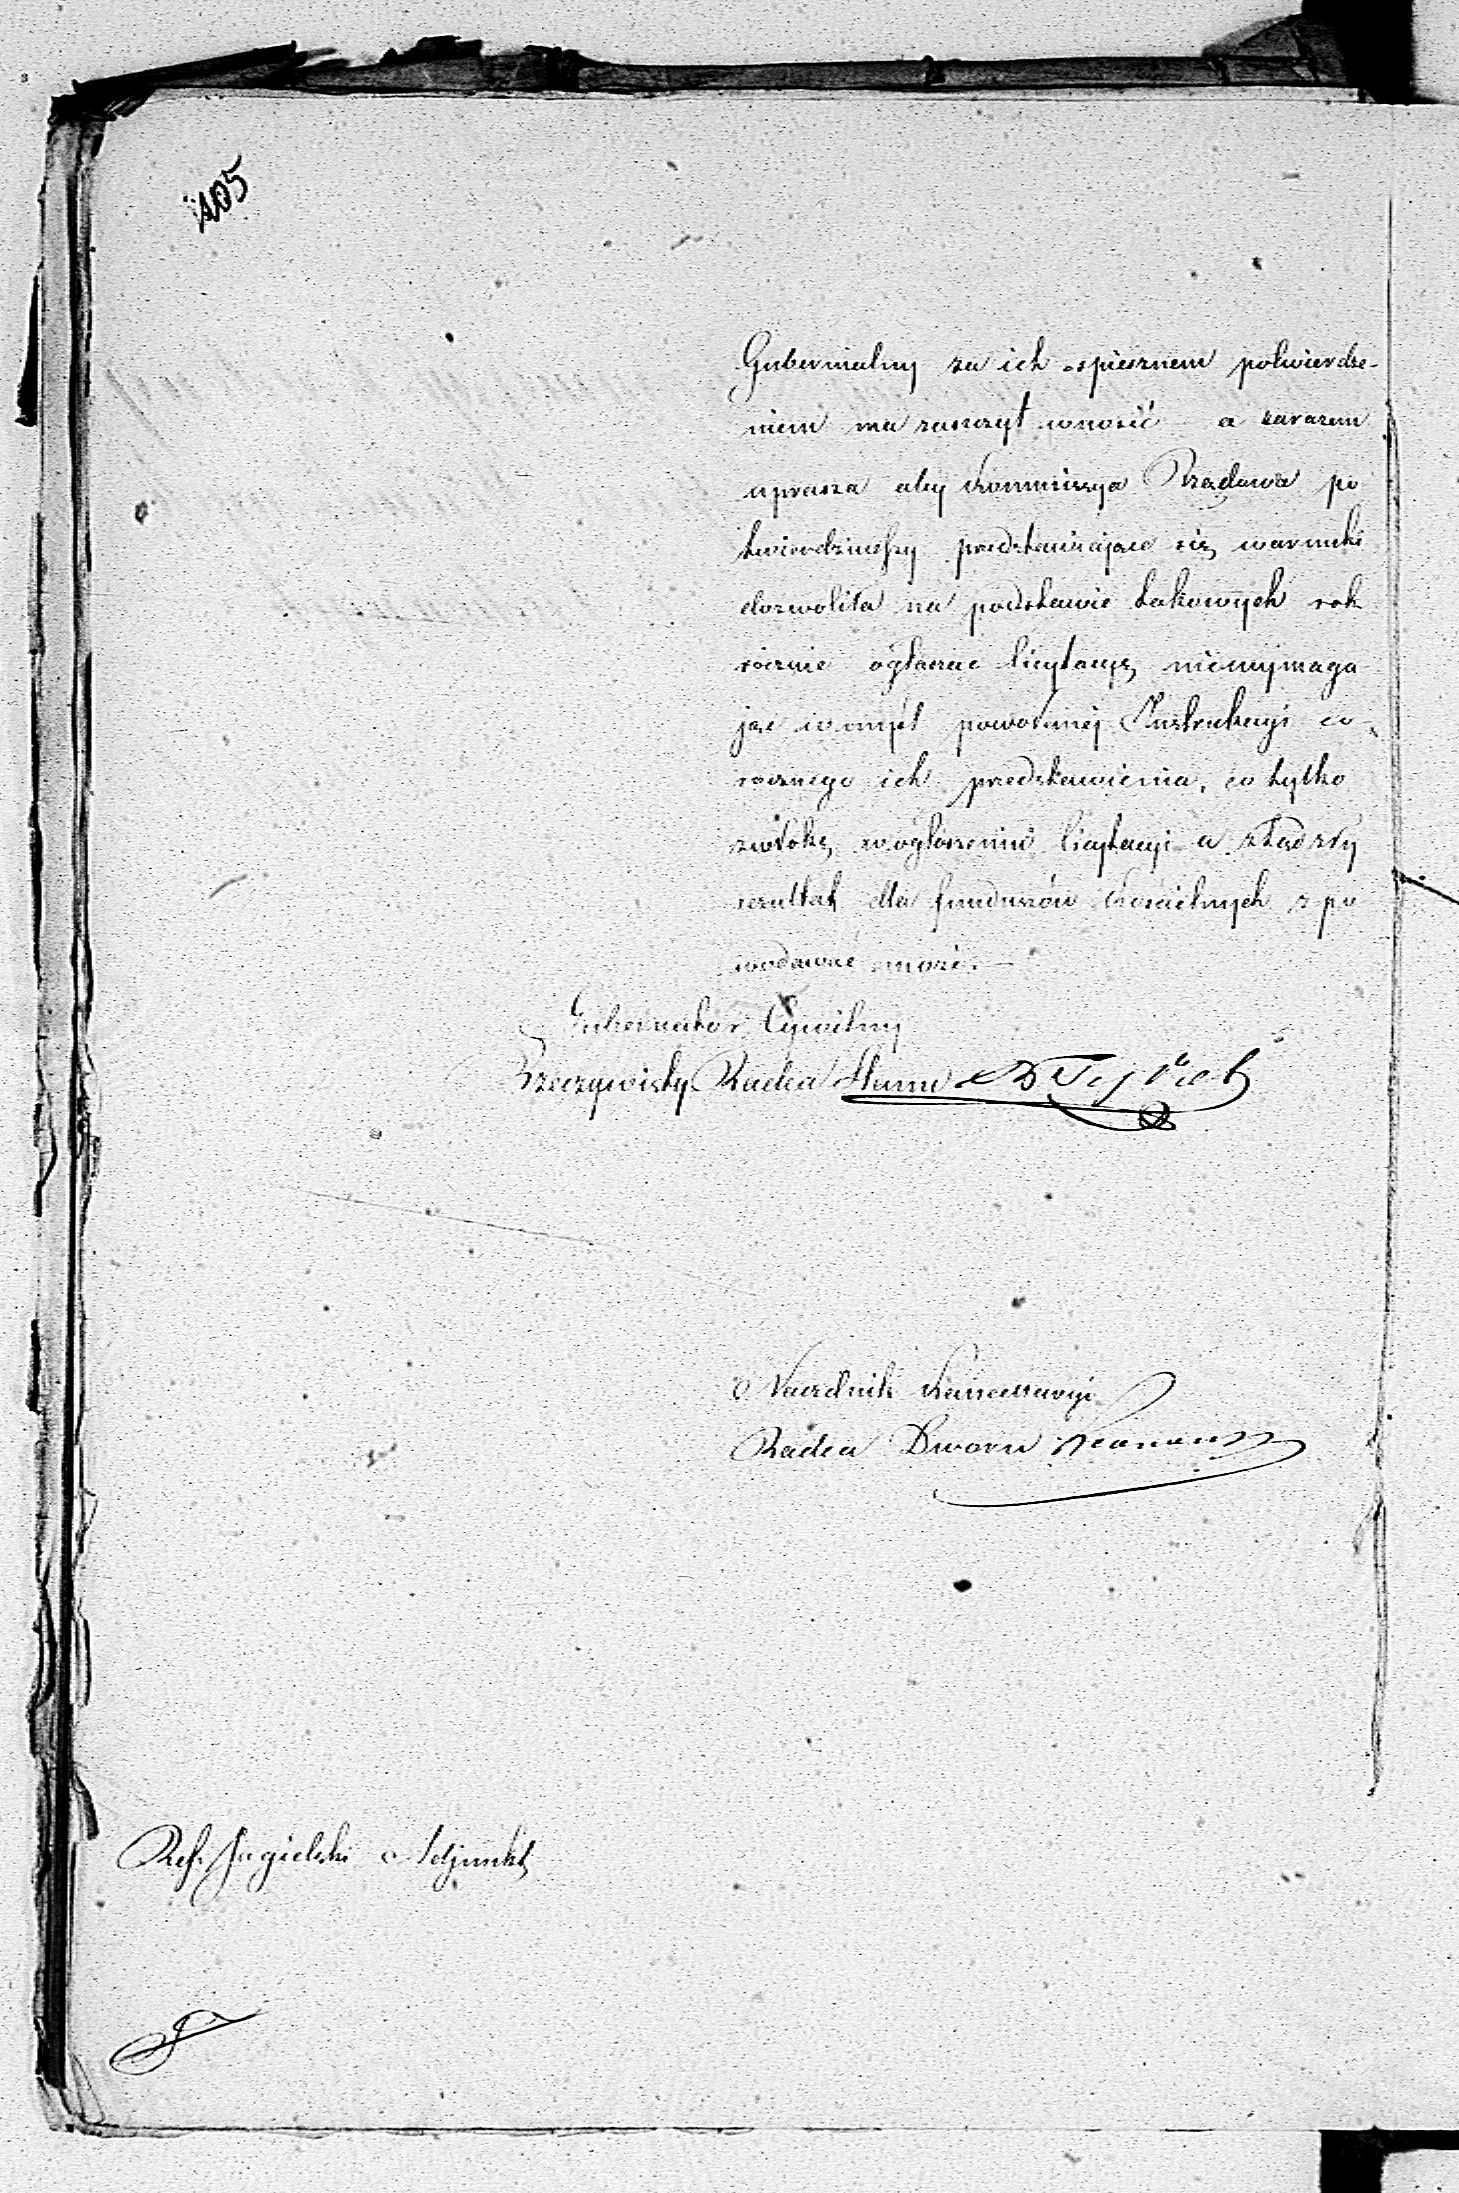 105
Gubernialny za ich spiesznem potwierdze-
niem ma zaszczyt wnosić a zarazem
uprasza aby Kommissya Rządowa po
twierdziwszy przedstawiające się warunki
dozwoliła na podstawie takowych rok
rocznie ogłaszać licytacyę, niewymaga
jąc w myśl powołanéj Instrukcyi co
rocznego ich przedstawienia, co tylko
zwłokę w ogłoszeniu licytacyi a ztąd zły
rezultat dla funduszów kościelnych spo
wodować może.—
Gubernator Cywilny
Rzeczywisty Radca Stanu
Naczelnik Kancellaryi
Radca Dworu
Ref. Jagielski Adjunkt